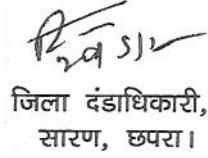 जिला दंडाधिकारी,
सारण, छपरा।